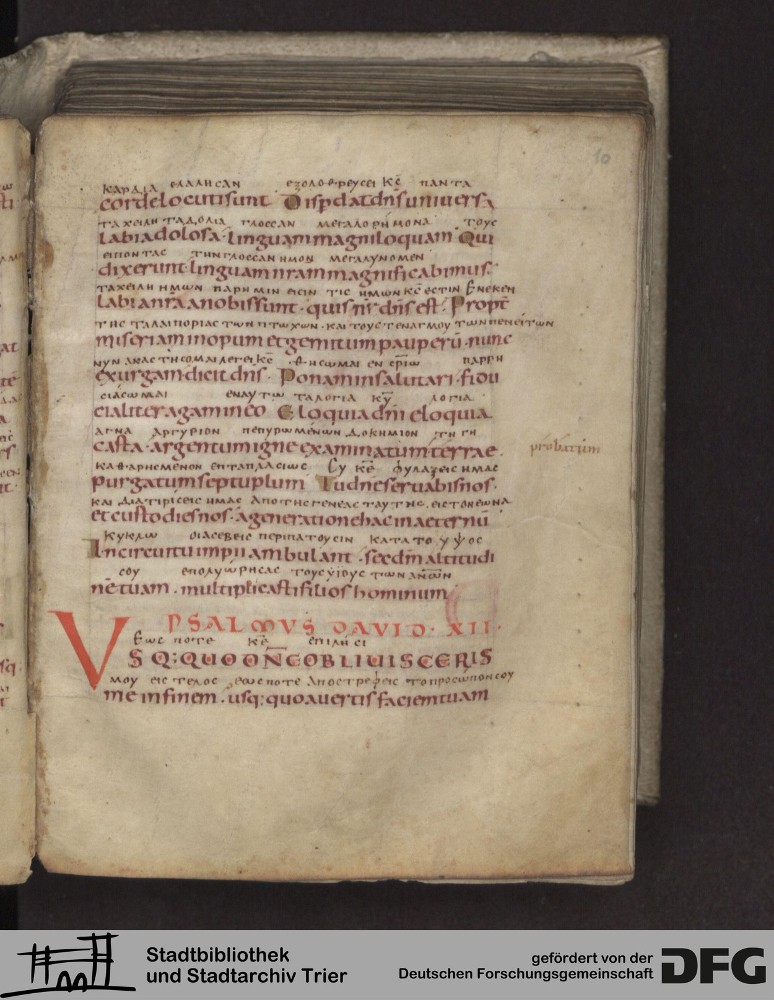 10
ΚΑΡΔΙΑ ΕΛΑΛΗCΑΝ ΕΞΟΛΟΘΡΕΥCΕΙ Κ̅Ε̅ ΠΑΝΤΑ
corde locuti sunt Disp̄dat dn̄s universa
ΤΑ ΧΕΙΛΗ ΤΑ ΔΟΛΙΑ ΓΛΟCCΑΝ ΜΕΓΑΛΟΡΗΜΟΝΑ ΤΟΥC
labia dolosa · linguam magniloquam Qui
ΕΙΠΟΝΤΑC ΤΗΝ ΓΛΟCCΑΝ ΗΜΟΝ ΜΕΓΑΛΥΝΟΜΕΝ
dixerunt · linguam nr̄am magnificabimus ·
ΤΑ ΧΕΙΛΗ ΗΜΩΝ ΠΑΡ ΗΜΙΝ ΕΙCΙΝ ΤΙC ΗΜΩΝ Κ̅Ε̅ ΕCΤΙΝ ΕΝΕΚΕΝ
labia nr̄a a nobis sunt · quis nr̄ dn̄s est · Propt̄
ΤΗC ΤΑΛΑΙΠΟΡΙΑC ΤΩΝ ΠΤΩΧΩΝ · ΚΑΙ ΤΟΥ CΤΕΝΑΓΜΟΥ ΤΩΝ ΠΕΝΕΙΤΩΝ
miseriam inopum et gemitum pauperū · nunc
ΝΥΝ ΑΝΑCΤΗCΟΜΑΙ ΛΕΓΕΙ Κ̅Ε̅ ΘΗCΩΜΑΙ ΕΝ CΡΙΩ ΠΑΡΡΗ
exurgam dicit dn̄s · Ponam in salutari · fidu
CΙΑCΩΜΑΙ ΕΝ ΑΥΤΩ ΤΑ ΛΟΓΙΑ Κ̅Υ̅ ΛΟΓΙΑ
cialiter agam in eo Eloquia dn̄i eloquia
ΑΓΝΑ ΑΡΓΥΡΙΟΝ ΠΕΠΥΡΩΜΕΝΩΝ ΔΟΚΙΜΙΟΝ ΤΗ ΓΗ
casta · argentum igne examinatum terrae ·
probatum
ΚΑΘΑΡΗCΜΕΝΟΝ ΕΠΤΑΠΛΑCΙΩC CΥ Κ̅Ε̅ ΦΥΛΑΞΕΙC ΗΜΑC
purgatum septuplum Tu dn̄e servabis nos ·
ΚΑΙ ΔΙΑΤΙΡΙCΕΙC ΗΜΑC ΑΠΟ ΤΗC ΓΕΝΕΑC ΤΑΥΤΗC · ΕΙC ΤΟΝ ΕΩΝΑ
et custodies nos · a generatione hac in aeternū
ΚΥΚΛΩ ΟΙ ΑCΕΒΕΙC ΠΕΡΙΠΑΤΟΥCΙΝ ΚΑΤΑ ΤΟ ΥΨΟC
In circuitu impii ambulant · scd̄m altitudi
CΟΥ ΕΠΟΛΥΩΡΗCΑC ΤΟΥC ΥΙΟΥC ΤΩΝ ΑΝ̅ΩΝ̅
nē tuam · multiplicasti filios hominum
PSALMVS DAVID · XII ·
ΕΩC ΠΟΤΕ Κ̅Ε̅ ΕΠΙΛΗCΙ
VSQ: QUO DN̄E OBLIVISCERIS
ΜΟΥ ΕΙC ΤΕΛΟC ΕΩC ΠΟΤΕ ΑΠΟCΤΡΕΦΕΙC ΤΟ ΠΡΟCΩΠΟΝ CΟΥ
me in finem · usq: quo avertis faciem tuam
Stadtbibliothek
und Stadtarchiv Trier
gefördert von der
Deutschen Forschungsgemeinschaft
DFG